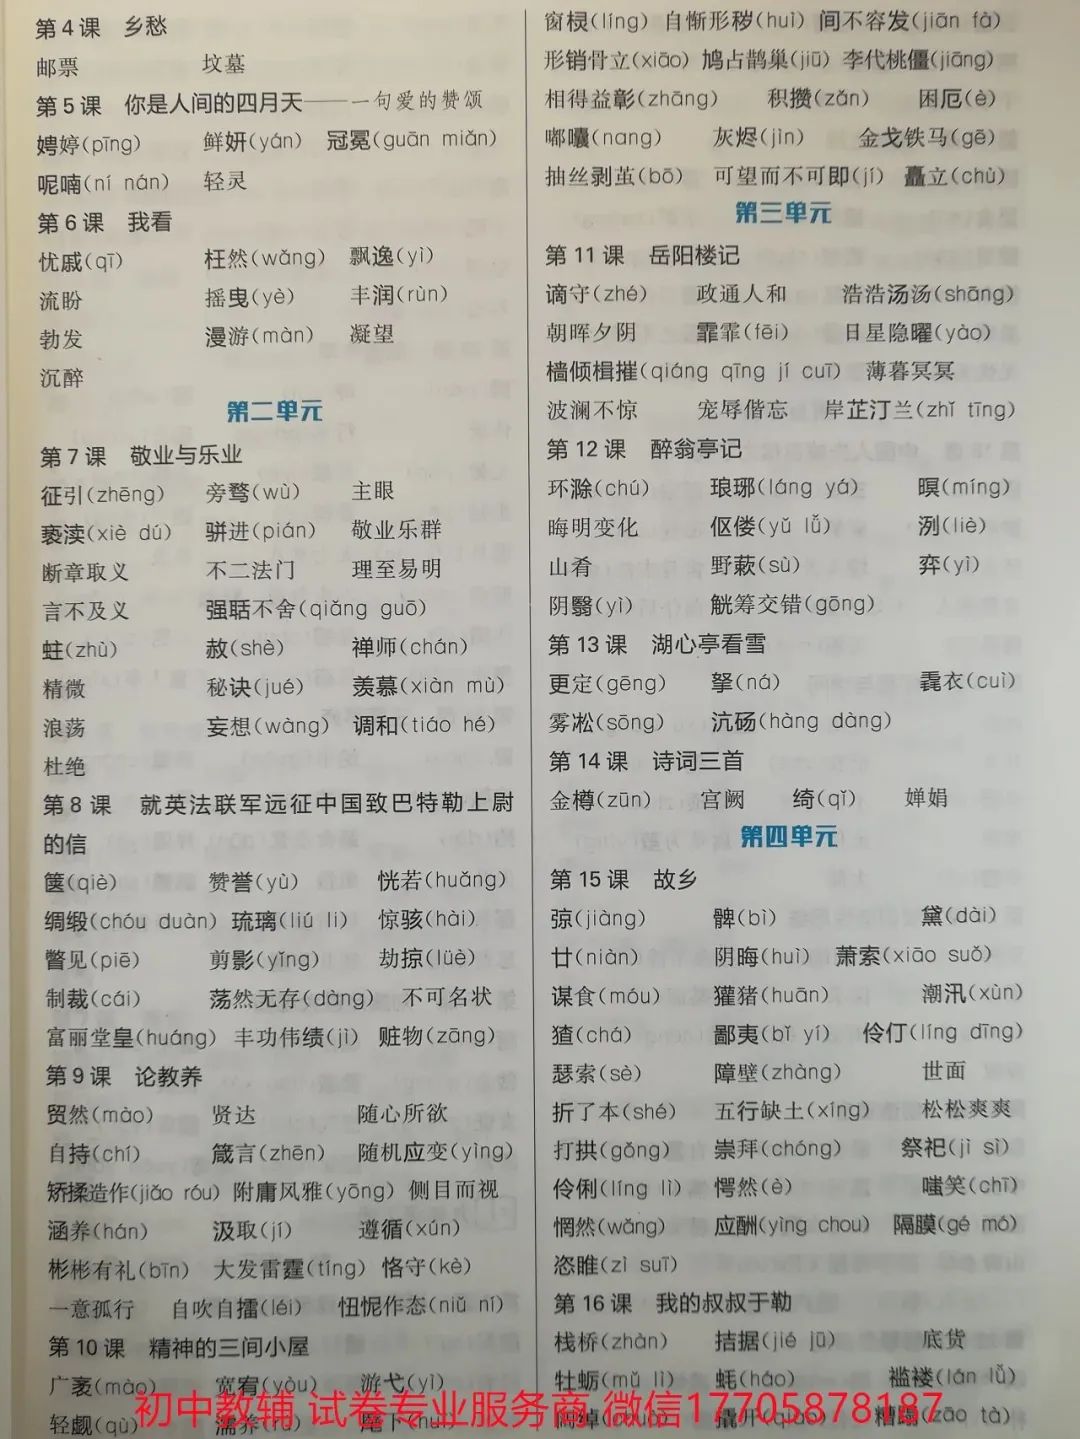 第4课 乡愁
邮票 坟墓
第5课 你是人间的四月天——一句爱的赞颂
娉婷(pīng) 鲜妍(yán) 冠冕(guān miǎn)
呢喃(ní nán) 轻灵
第6课 我看
忧戚(qī) 枉然(wǎng) 飘逸(yì)
流盼 摇曳(yè) 丰润(rùn)
勃发 漫游(màn) 凝望
沉醉
第二单元
第7课 敬业与乐业
征引(zhēng) 旁骛(wù) 主眼
亵渎(xiè dú) 骈进(pián) 敬业乐群
断章取义 不二法门 理至易明
言不及义 强聒不舍(qiǎng guō)
蛀(zhù) 赦(shè) 禅师(chán)
精微 秘诀(jué) 羡慕(xiàn mù)
浪荡 妄想(wàng) 调和(tiáo hé)
杜绝
第8课 就英法联军远征中国致巴特勒上尉
的信
箧(qiè) 赞誉(yù) 恍若(huǎng)
绸缎(chóu duàn) 琉璃(liú li) 惊骇(hài)
瞥见(piē) 剪影(yǐng) 劫掠(lüè)
制裁(cái) 荡然无存(dàng) 不可名状
富丽堂皇(huáng) 丰功伟绩(jì) 赃物(zāng)
第9课 论教养
贸然(mào) 贤达 随心所欲
自持(chí) 箴言(zhēn) 随机应变(yìng)
矫揉造作(jiǎo róu) 附庸风雅(yōng) 侧目而视
涵养(hán) 汲取(jí) 遵循(xún)
彬彬有礼(bīn) 大发雷霆(tíng) 恪守(kè)
一意孤行 自吹自擂(léi) 忸怩作态(niǔ ní)
第10课 精神的三间小屋
广袤(mào) 宽宥(yòu) 游弋(yì)
轻觑(qù) 濡养(rú) 麾下(huī)
窗棂(líng) 自惭形秽(huì) 间不容发(jiān fà)
形销骨立(xiāo) 鸠占鹊巢(jiū) 李代桃僵(jiāng)
相得益彰(zhāng) 积攒(zǎn) 困厄(è)
嘟囔(nang) 灰烬(jìn) 金戈铁马(gē)
抽丝剥茧(bō) 可望而不可即(jí) 矗立(chù)
第三单元
第11课 岳阳楼记
谪守(zhé) 政通人和 浩浩汤汤(shāng)
朝晖夕阴 霏霏(fēi) 日星隐曜(yào)
樯倾楫摧(qiáng qīng jí cuī) 薄暮冥冥
波澜不惊 宠辱偕忘 岸芷汀兰(zhǐ tīng)
第12课 醉翁亭记
环滁(chú) 琅琊(láng yá) 暝(míng)
晦明变化 伛偻(yǔ lǚ) 洌(liè)
山肴 野蔌(sù) 弈(yì)
阴翳(yì) 觥筹交错(gōng)
第13课 湖心亭看雪
更定(gēng) 拏(ná) 毳衣(cuì)
雾凇(sōng) 沆砀(hàng dàng)
第14课 诗词三首
金樽(zūn) 宫阙 绮(qǐ) 婵娟
第四单元
第15课 故乡
弶(jiàng) 髀(bì) 黛(dài)
廿(niàn) 阴晦(huì) 萧索(xiāo suǒ)
谋食(móu) 獾猪(huān) 潮汛(xùn)
猹(chá) 鄙夷(bǐ yí) 伶仃(líng dīng)
瑟索(sè) 障壁(zhàng) 世面
折了本(shé) 五行缺土(xíng) 松松爽爽
打拱(gǒng) 崇拜(chóng) 祭祀(jì sì)
伶俐(líng lì) 愕然(è) 嗤笑(chī)
惘然(wǎng) 应酬(yìng chou) 隔膜(gé mó)
恣睢(zì suī)
第16课 我的叔叔于勒
栈桥(zhàn) 拮据(jié jū) 底货
牡蛎(mǔ lì) 蚝(háo) 褴褛(lán lǚ)
阔绰(chuò) 撬开(qiào) 糟蹋(zāo tà)
初中教辅 试卷专业服务商 微信17705878187